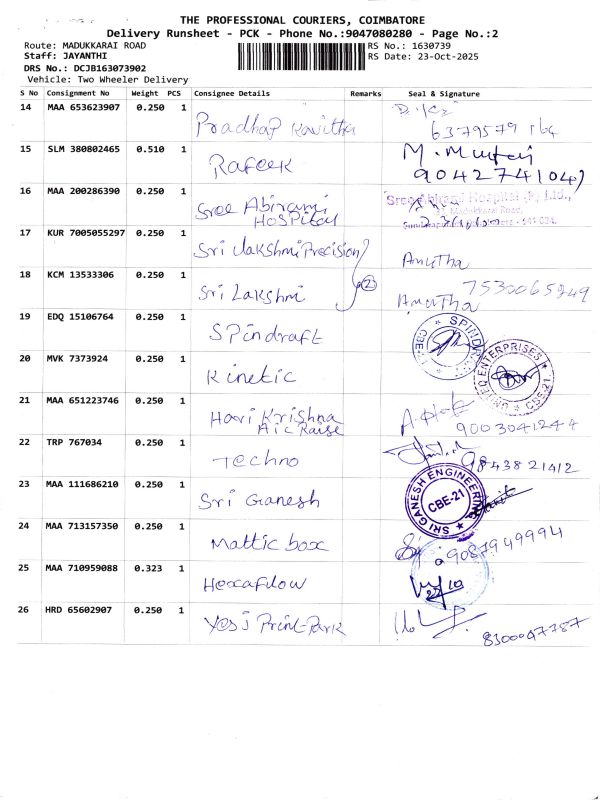 THE PROFESSIONAL COURIERS, COIMBATORE
Delivery Runsheet - PCK - Phone No.:9047080280 - Page No.:2
Route: MADUKKARAI ROAD RS No.: 1630739
Staff: JAYANTHI RS Date: 23-Oct-2025
DRS No.: DCJB163073902
Vehicle: Two Wheeler Delivery
S No Consignment No Weight PCS Consignee Details Remarks Seal & Signature
14 MAA 653623907 0.250 1 Pradhap Kavitha
6379579164
15 SLM 380802465 0.510 1 Rafeek
9042741047
16 MAA 200286390 0.250 1 Sree Abirami
Hospital
17 KUR 7005055297 0.250 1 Sri Lakshmi Precision Anutha
18 KCM 13533306 0.250 1 Sri Lakshmi 2 Anutha 7530065849
19 EDQ 15106764 0.250 1 Spindraft
20 MVK 7373924 0.250 1 Kinetic
ENTERPRISES CBE-21
21 MAA 651223746 0.250 1 Hari Krishna
9003041244
22 TRP 767034 0.250 1 Techno 9843821412
23 MAA 111686210 0.250 1 Sri Ganesh
SRI GANESH ENGINEERING CBE-21
24 MAA 713157350 0.250 1 Mattic box 9087949994
25 MAA 710959088 0.323 1 Hexaflow
22/10
26 HRD 65602907 0.250 1 Yes i Print-Park
8300047787